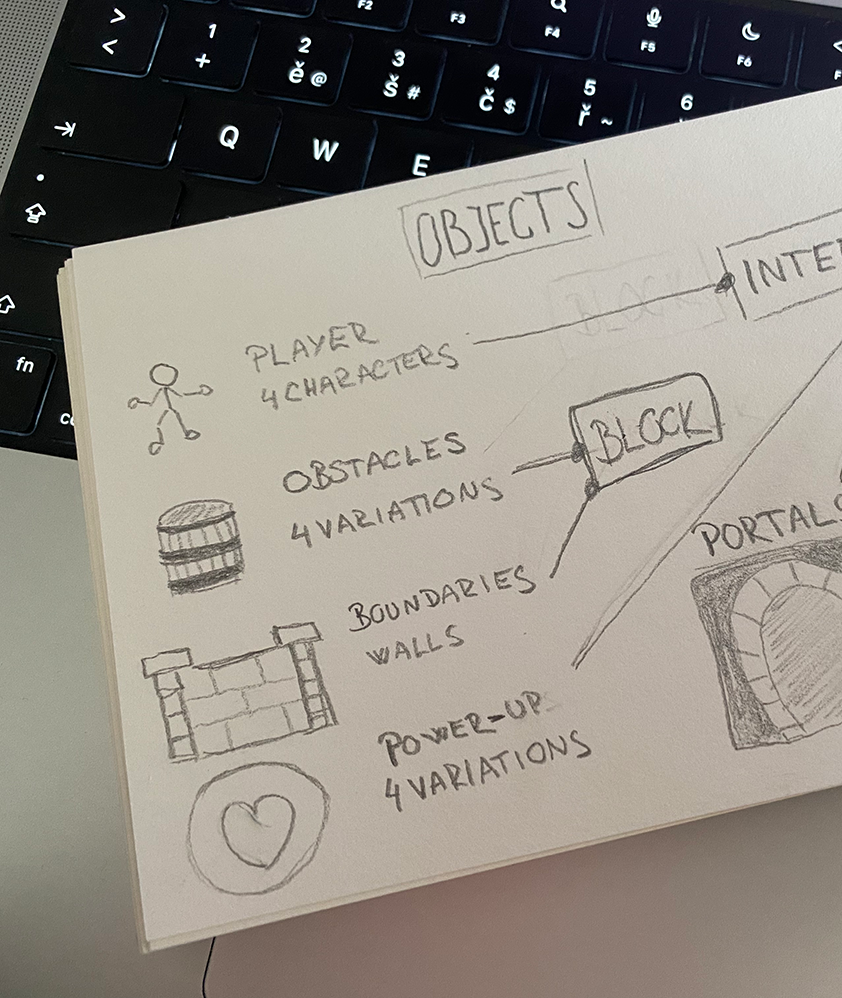 F2
F3
F4
F5
F6
>
<
1
+
2
ě @
3
š #
4
č $
5
ř ~
6
Q
W
E
fn
OBJECTS
BLOCK
INTE
PLAYER
4 CHARACTERS
OBSTACLES
4 VARIATIONS
BLOCK
BOUNDARIES
WALLS
PORTALS
POWER-UP
4 VARIATIONS